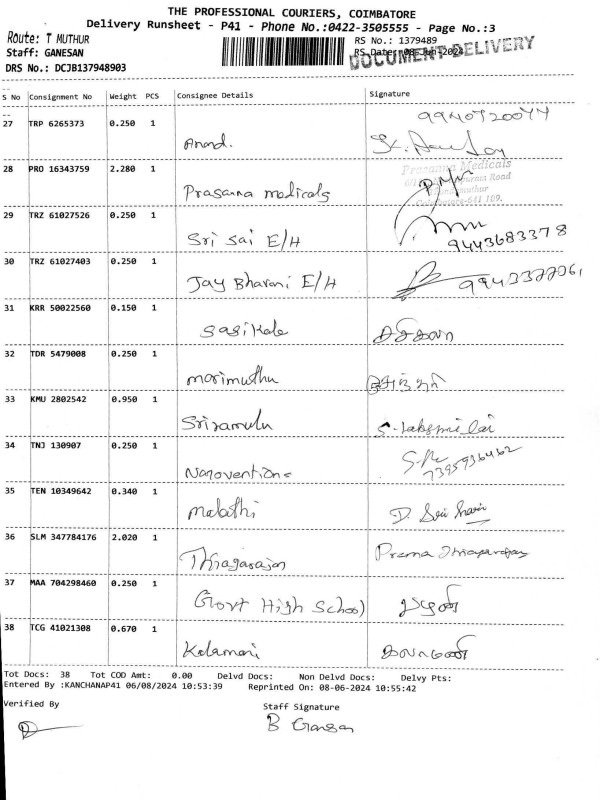 THE PROFESSIONAL COURIERS, COIMBATORE
Delivery Runsheet - P41 - Phone No.:0422-3505555 - Page No.:3
Route: T MUTHUR
RS No.: 1379489
Staff: GANESAN
RS Date: 08-Jun-2024
DOCUMENT DELIVERY
DRS No.: DCJB137948903
S No Consignment No Weight PCS Consignee Details Signature
27 TRP 6265373 0.250 1 Anand. 9940720044
28 PRO 16343759 2.280 1 Prasanna medicals
Prasanna Medicals
Road
641 109.
29 TRZ 61027526 0.250 1 Sri Sai E/H 9443683378
30 TRZ 61027403 0.250 1 Jay Bharani E/H
31 KRR 50022560 0.150 1 Sasikala சசிகலா
32 TDR 5479008 0.250 1 marimuthu
33 KMU 2802542 0.950 1 Sriramulu
34 TNJ 130907 0.250 1 Nanoventions 7395936462
35 TEN 10349642 0.340 1 malathi
36 SLM 347784176 2.020 1 Thiagarajan Prema Thiagarajan
37 MAA 704298460 0.250 1 Govt High School
38 TCG 41021308 0.670 1 Kalamani கலாமணி
Tot Docs: 38 Tot COD Amt: 0.00 Delvd Docs: Non Delvd Docs: Delvy Pts:
Entered By :KANCHANAP41 06/08/2024 10:53:39 Reprinted On: 08-06-2024 10:55:42
Verified By Staff Signature
B Ganesan